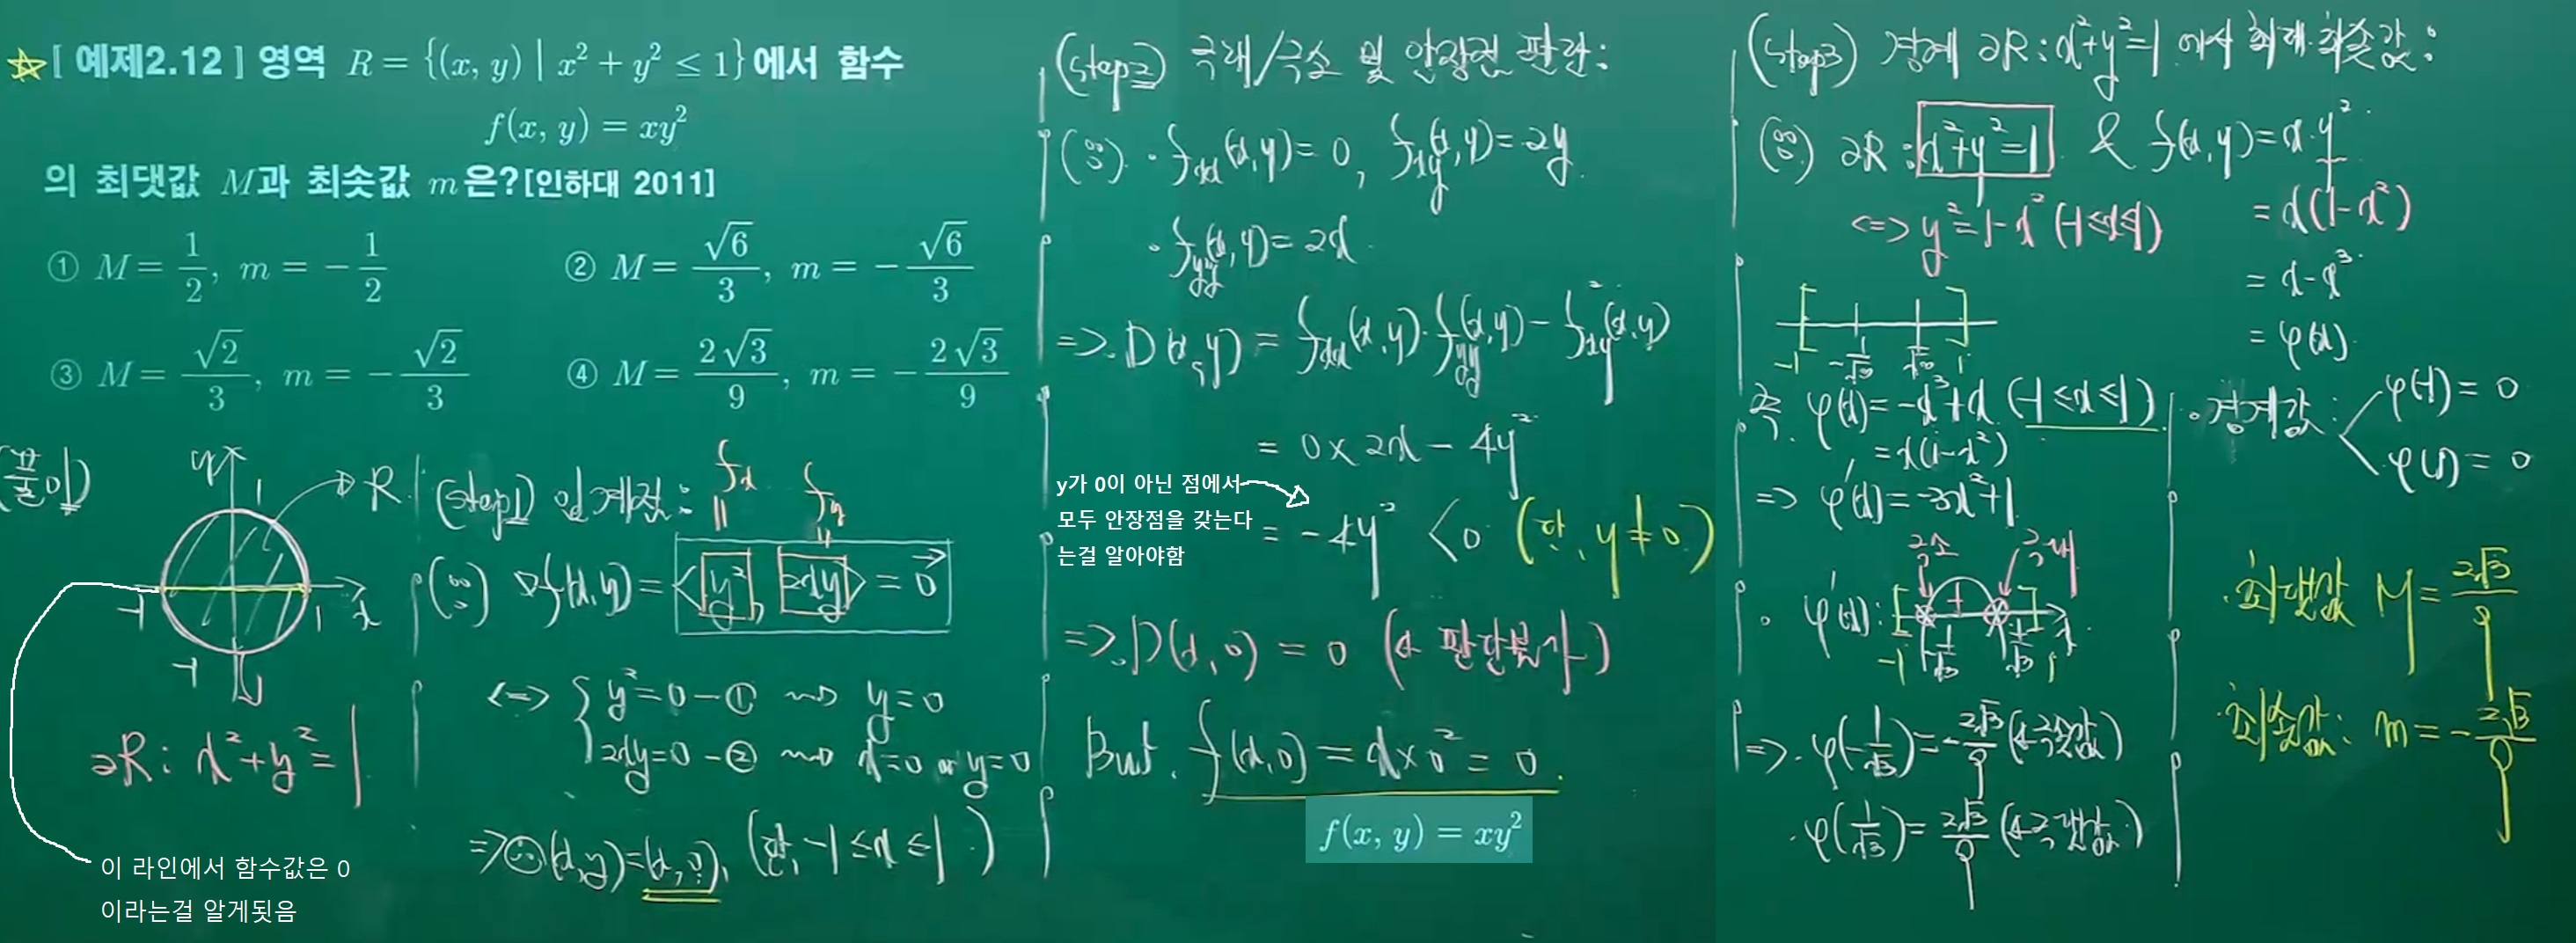 ☆[ 예제2.12 ] 영역 R = {(x, y) | x² + y² ≤ 1}에서 함수
f(x, y) = xy²
의 최댓값 M과 최솟값 m은?[인하대 2011]
① M = 1/2, m = −1/2
② M = √6/3, m = −√6/3
③ M = √2/3, m = −√2/3
④ M = 2√3/9, m = −2√3/9
(풀이)
y
1
R
-1
1
x
-1
∂R : x²+y²=1
이 라인에서 함수값은 0
이라는걸 알게됫음
(step1) 임계점 :
fx
fy
(∵) ∇f(x,y) = <y², 2xy> = 0⃗
<=> { y²=0 − ① ⇝ y=0
2xy=0 − ② ⇝ x=0 or y=0
=> (x,y)=(x,0), (단, -1≤x≤1)
(step2) 극대/극소 및 안장점 판단 :
(∵) · fxx(x,y) = 0, fxy(x,y) = 2y
· fyy(x,y) = 2x
=> D(x,y) = fxx(x,y)·fyy(x,y) − fxy²(x,y)
= 0×2x − 4y²
y가 0이 아닌 점에서
모두 안장점을 갖는다
는걸 알아야함
= −4y² < 0 (단, y≠0)
=> D(x,0) = 0 (← 판단불가)
But. f(x,0) = x×0² = 0.
f(x, y) = xy²
(step3) 경계 ∂R : x²+y²=1 에서 최대·최솟값 :
(∵) ∂R : x²+y²=1 & f(x,y)=x·y²
<=> y²=1-x² (-1≤x≤1)
= x(1-x²)
= x-x³
= φ(x)
-1 -1/√3 1/√3 1
즉. φ(x)=-x³+x (-1≤x≤1)
= x(1-x²)
=> φ'(x) = -3x²+1
극소 극대
· φ'(x) : + 
-1 -1/√3 1/√3 1 x
=> · φ(-1/√3) = -2√3/9 (← 극솟값)
· φ(1/√3) = 2√3/9 (← 극댓값)
· 경계값 : φ(-1) = 0
φ(1) = 0
· 최댓값 M = 2√3/9
· 최솟값 : m = -2√3/9